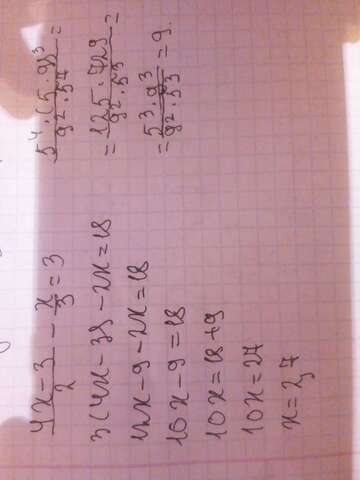 (4x-3)/2 - x/3 = 3
3(4x-3)-2x=18
12x-9-2x=18
10x-9=18
10x=18+9
10x=27
x=2,7
5⁴·(5·9)³/9²·5⁷ =
= 125·729/9²·5³ =
= 5³·9³/9²·5³ = 9.